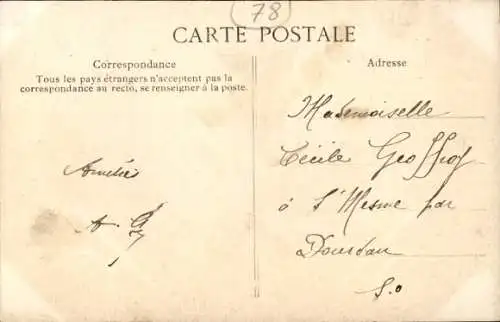 78
CARTE POSTALE
Correspondance
Tous les pays étrangers n'acceptent pas la
correspondance au recto, se renseigner à la poste.
Adresse
Mademoiselle
Cécile Geoffroy
à St Mesme par
Dourdan
S.o
Amitié
A. G